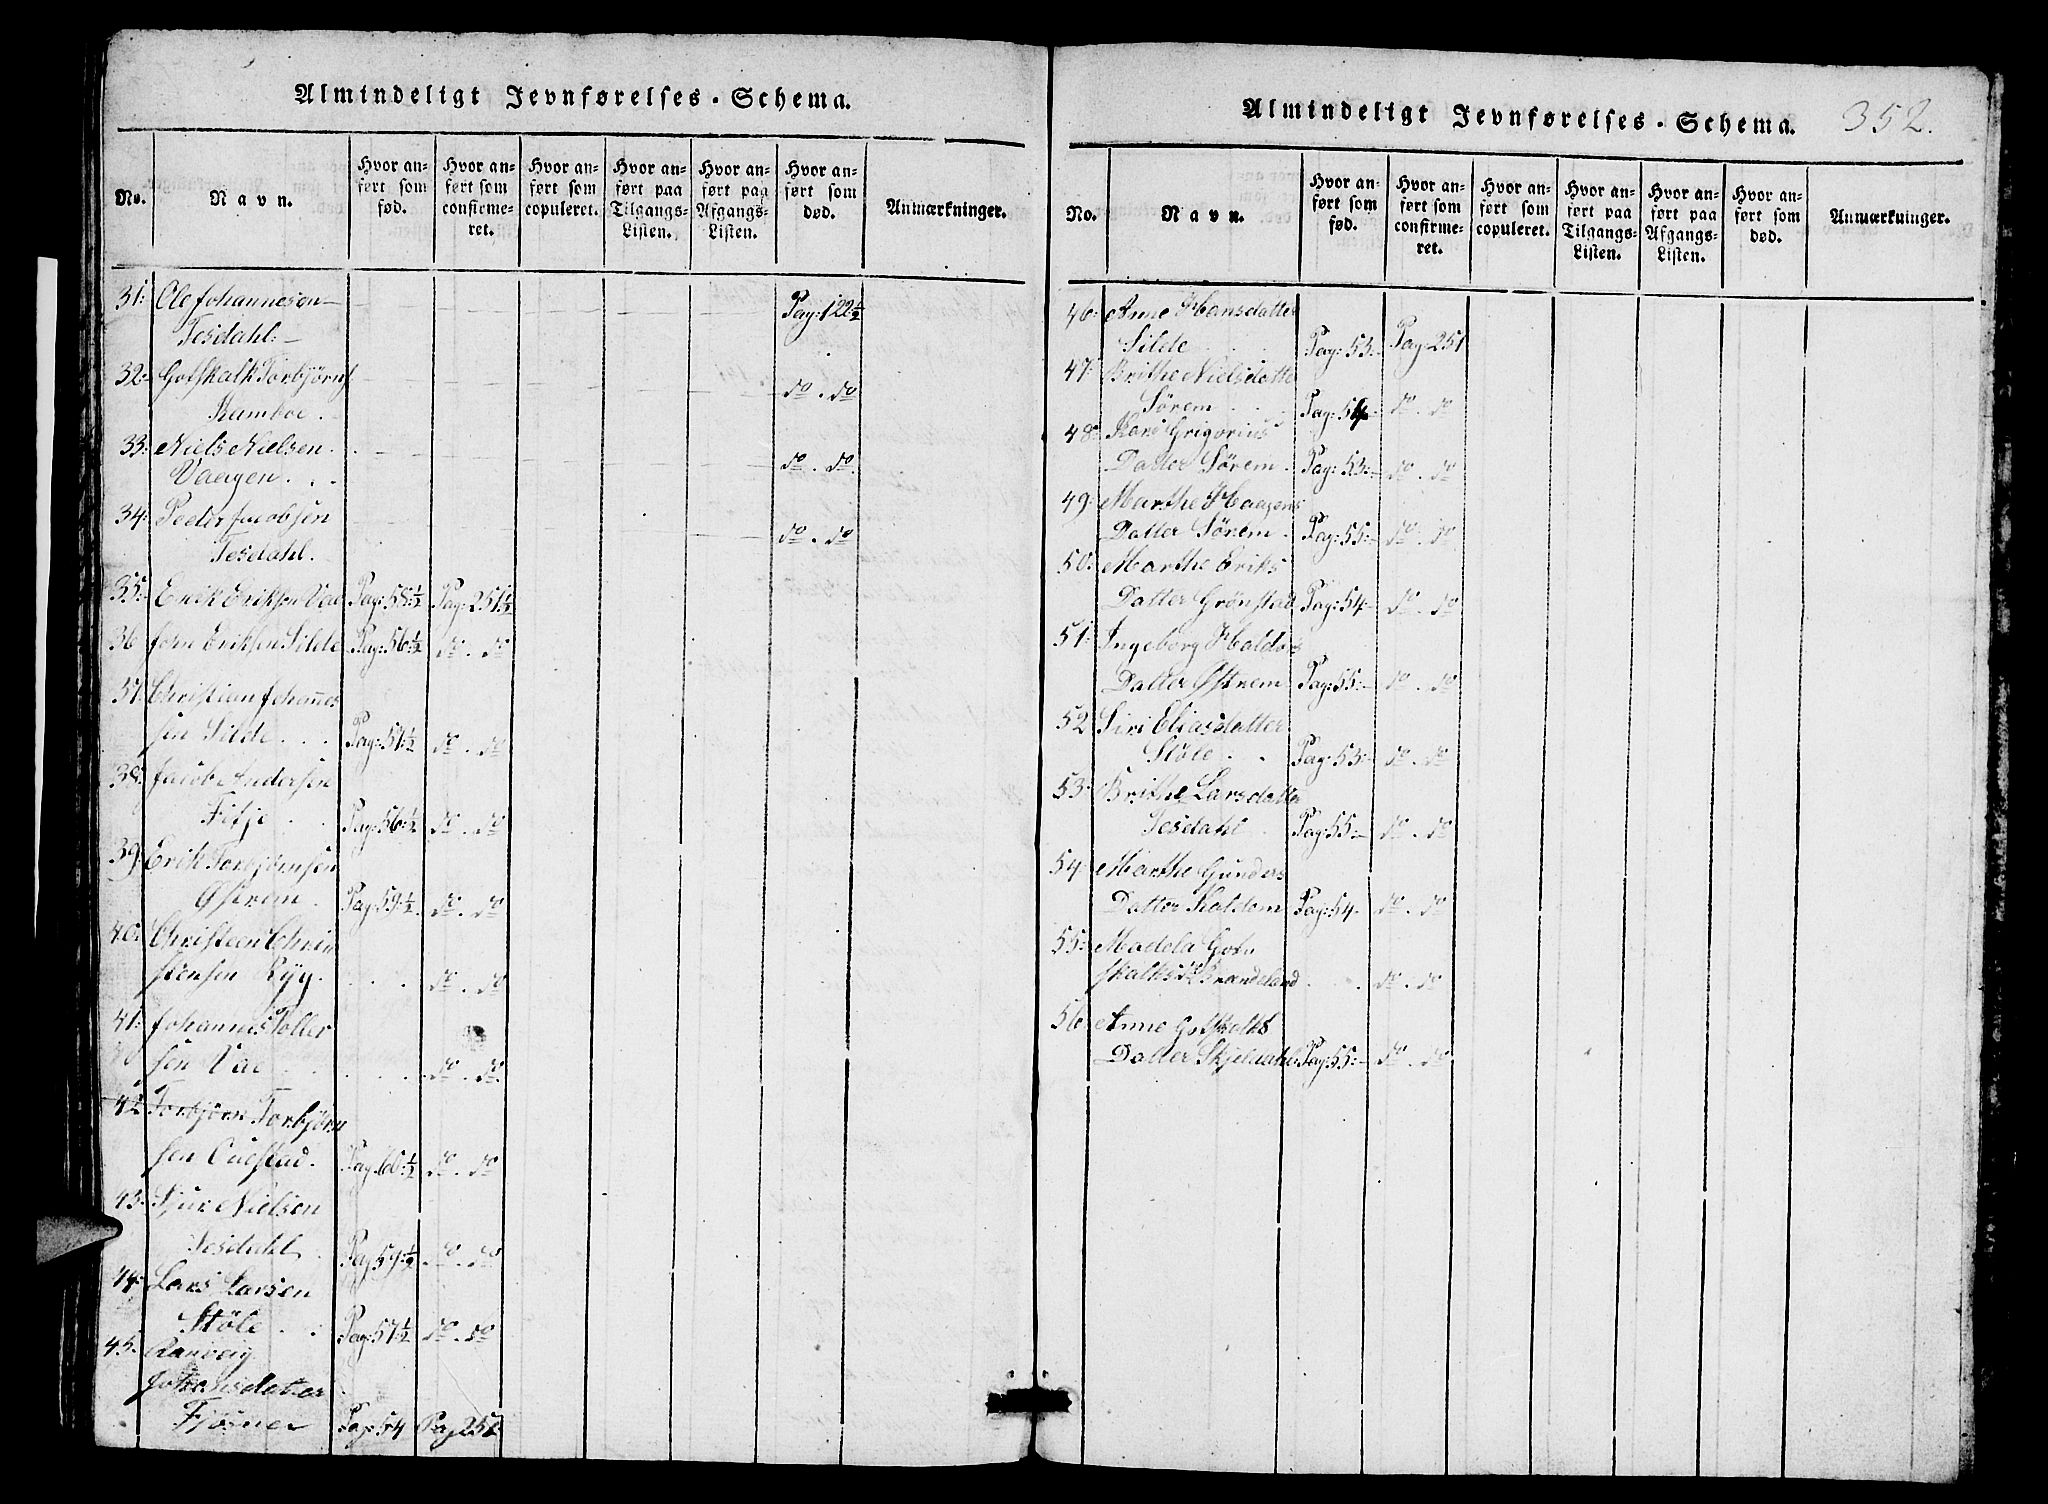 Almindeligt Jevnførelses-Schema.
No.
Navn.
Hvor anført som fød.
Hvor anført som confirmeret.
Hvor anført som copuleret.
Hvor anført paa Tilgangs-Listen.
Hvor anført paa Afgangs-Listen.
Hvor anført som død.
Anmærkninger.
31: Ole Johannesen Tesdahl: Pag: 122½
32: Gotskalk Torbjørns Kamboe. do. do
33: Niels Nielsen Vaagen. do. do.
34: Peeter Jacobsen Tesdahl. do. do
35: Erik Eriksen Vae Pag: 58½ Pag: 251½
36 Jørn Eriksen Silde Pag: 56½ do. do
37. Christian Johannes
sen Silde. Pag: 57½ do. do
38. Jacob Andersen
Fitje Pag: 56½ do. do
39: Erik Torbjørnsen
Østrem. Pag: 59½ do. do
40: Christeen Chri
stensen Ryg. do. do
41: Johannes Toller
sen Vae do. do.
42 Torbjørn Torbjørn
sen Questad. Pag: 60½ do. do
43: Sjur Nielsen
Tesdahl Pag 59½ do. do
44: Lars Larsen
Støle Pag: 57½ do. do
45: Ranveig
Johansdatter
Fjøsner Pag: 54 Pag 251
Almindeligt Jevnførelses-Schema. 352.
No.
Navn.
Hvor anført som fød.
Hvor anført som confirmeret.
Hvor anført som copuleret.
Hvor anført paa Tilgangs-Listen.
Hvor anført paa Afgangs-Listen.
Hvor anført som død.
Anmærkninger.
46: Anne Hansdatter
Silde Pag: 53. Pag: 251
47: Brithe Nielsdatte
Sørem Pag: 54 do. do
48: Kari Grigorius
Datter Sørem. Pag: 53: do. do
49: Marthe Haagens
Datter Sørem. Pag: 55: do. do
50: Marthe Eriks
Datter Grønstad Pag: 54 do. do
51: Ingeborg Haldors
Datter Østrem Pag: 55: do. do
52 Siri Eliasdatter
Støle. Pag: 53: do. do
53: Brithe Larsdatter
Tesdahl Pag: 55: do. do
54: Marthe Gunders
Datter Koldom Pag: 54 do. do
55: Madela Got
skalksd. Brandeland do. do
56. Anne Gotskalks
Datter Skjeldahl Pag: 55: do. do